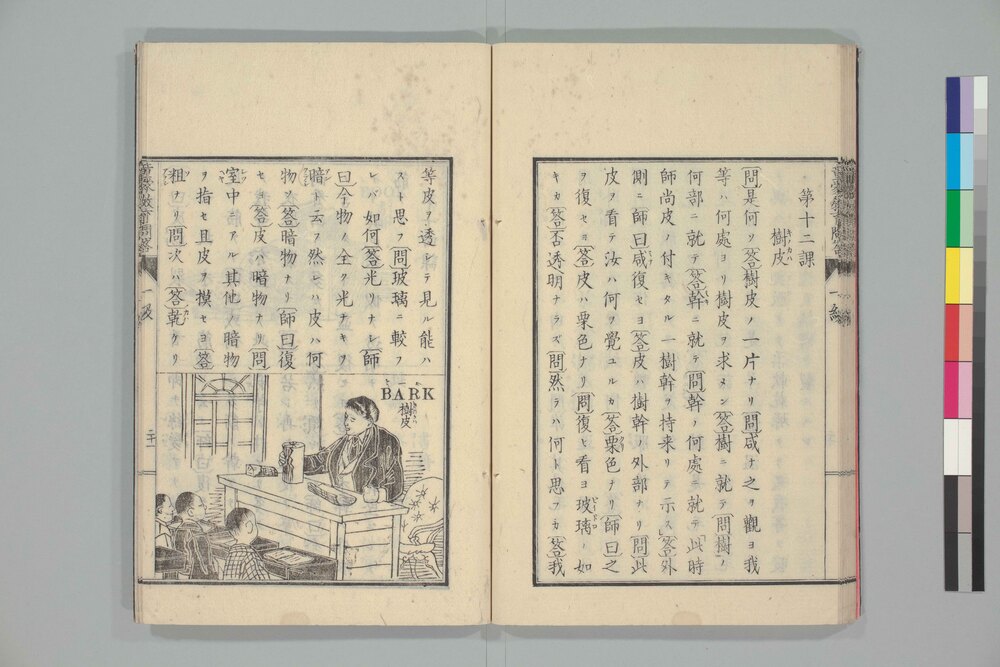 第十二課
樹皮
問是何ゾ答樹皮ノ一片ナリ問咸ナ之ヲ觀ヨ我
等ハ何處ヨリ樹皮ヲ求メン答樹ニ就テ問樹ノ
何部ニ就テ答幹ニ就テ問幹ノ何處ニ就テ此時
師尚皮ノ付キタル一樹幹ヲ持来リテ示ス答外
側ニ師曰咸復セヨ答皮ハ樹幹ノ外部ナリ問此
皮ヲ看テ汝ハ何ヲ覺ユルカ答栗色ナリ師曰之
ヲ復セヨ答皮ハ栗色ナリ問復ヒ看ヨ玻璃ノ如
キカ答否透明ナラズ問然ラハ何ト思フカ答我
等皮ヲ透シテ見ル能ハ
スト思フ問玻璃ニ較フ
レバ如何答光リナシ師
曰今物ノ全ク光ナキヲ
暗ト云フ然レハ皮ハ何
物ソ答暗物ナリ師曰復
セヨ答皮ハ暗物ナリ問
室中ニアル其他ノ暗物
ヲ指セ且皮ヲ摸セヨ答
粗ナリ問次ハ答乾ケリ
BARK
樹皮
二十一